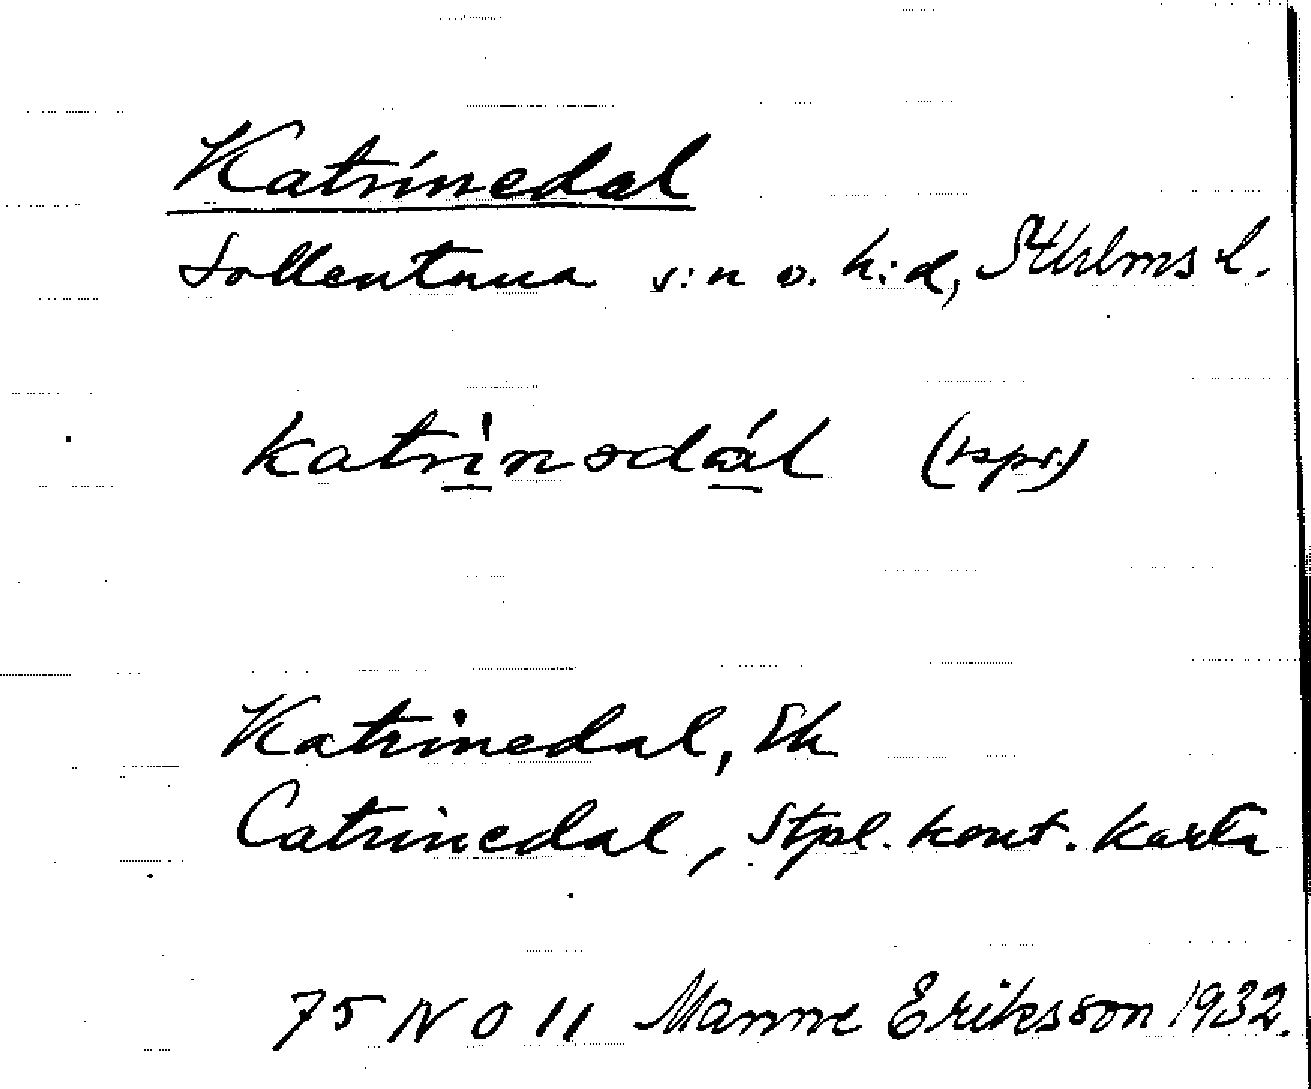 Katrinedal
Sollentuna s:n o. h:d, Sthlms l.
katrinədál (tspr.)
Katrinedal, Ek
Catrinedal, Stpl. kont. karta
75 NO 11 Manne Eriksson 1932.